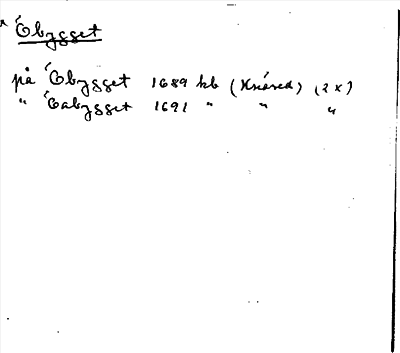 Óbygget
på Óbygget 1689 kb (Knäred) (2 x)
" Óabygget 1691 " " "